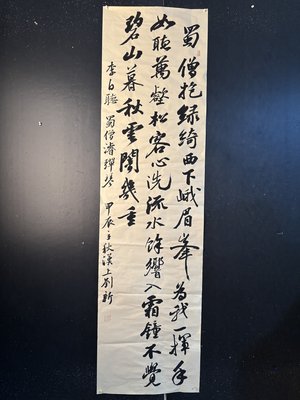 蜀僧抱绿绮西下峨眉峯为我一挥手
如聴萬壑松客心洗流水餘響入霜鐘不覺
碧山暮秋雲闇幾重
李白聴蜀僧濬弹琴 甲辰之秋漢上劉新